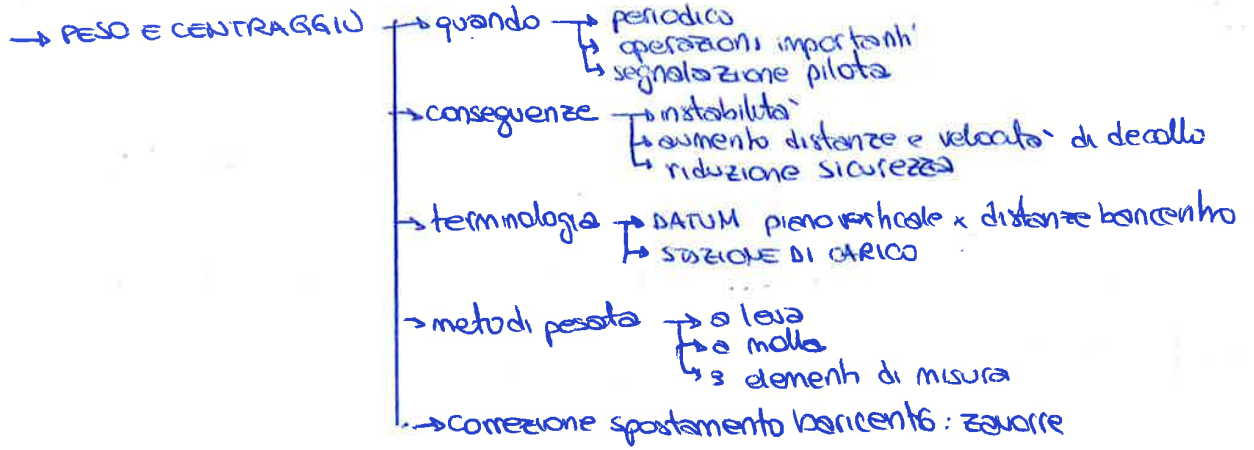 → PESO E CENTRAGGIO → quando → periodico
→ operazioni importanti
→ segnalazione pilota
→ conseguenze → instabilità
→ aumento distanze e velocità di decollo
→ riduzione sicurezza
→ terminologia → DATUM piano verticale x distanze baricentro
→ STAZIONE DI CARICO
→ metodi pesata → a leva
→ a molla
→ 3 elementi di misura
→ correzione spostamento baricentro: zavorre